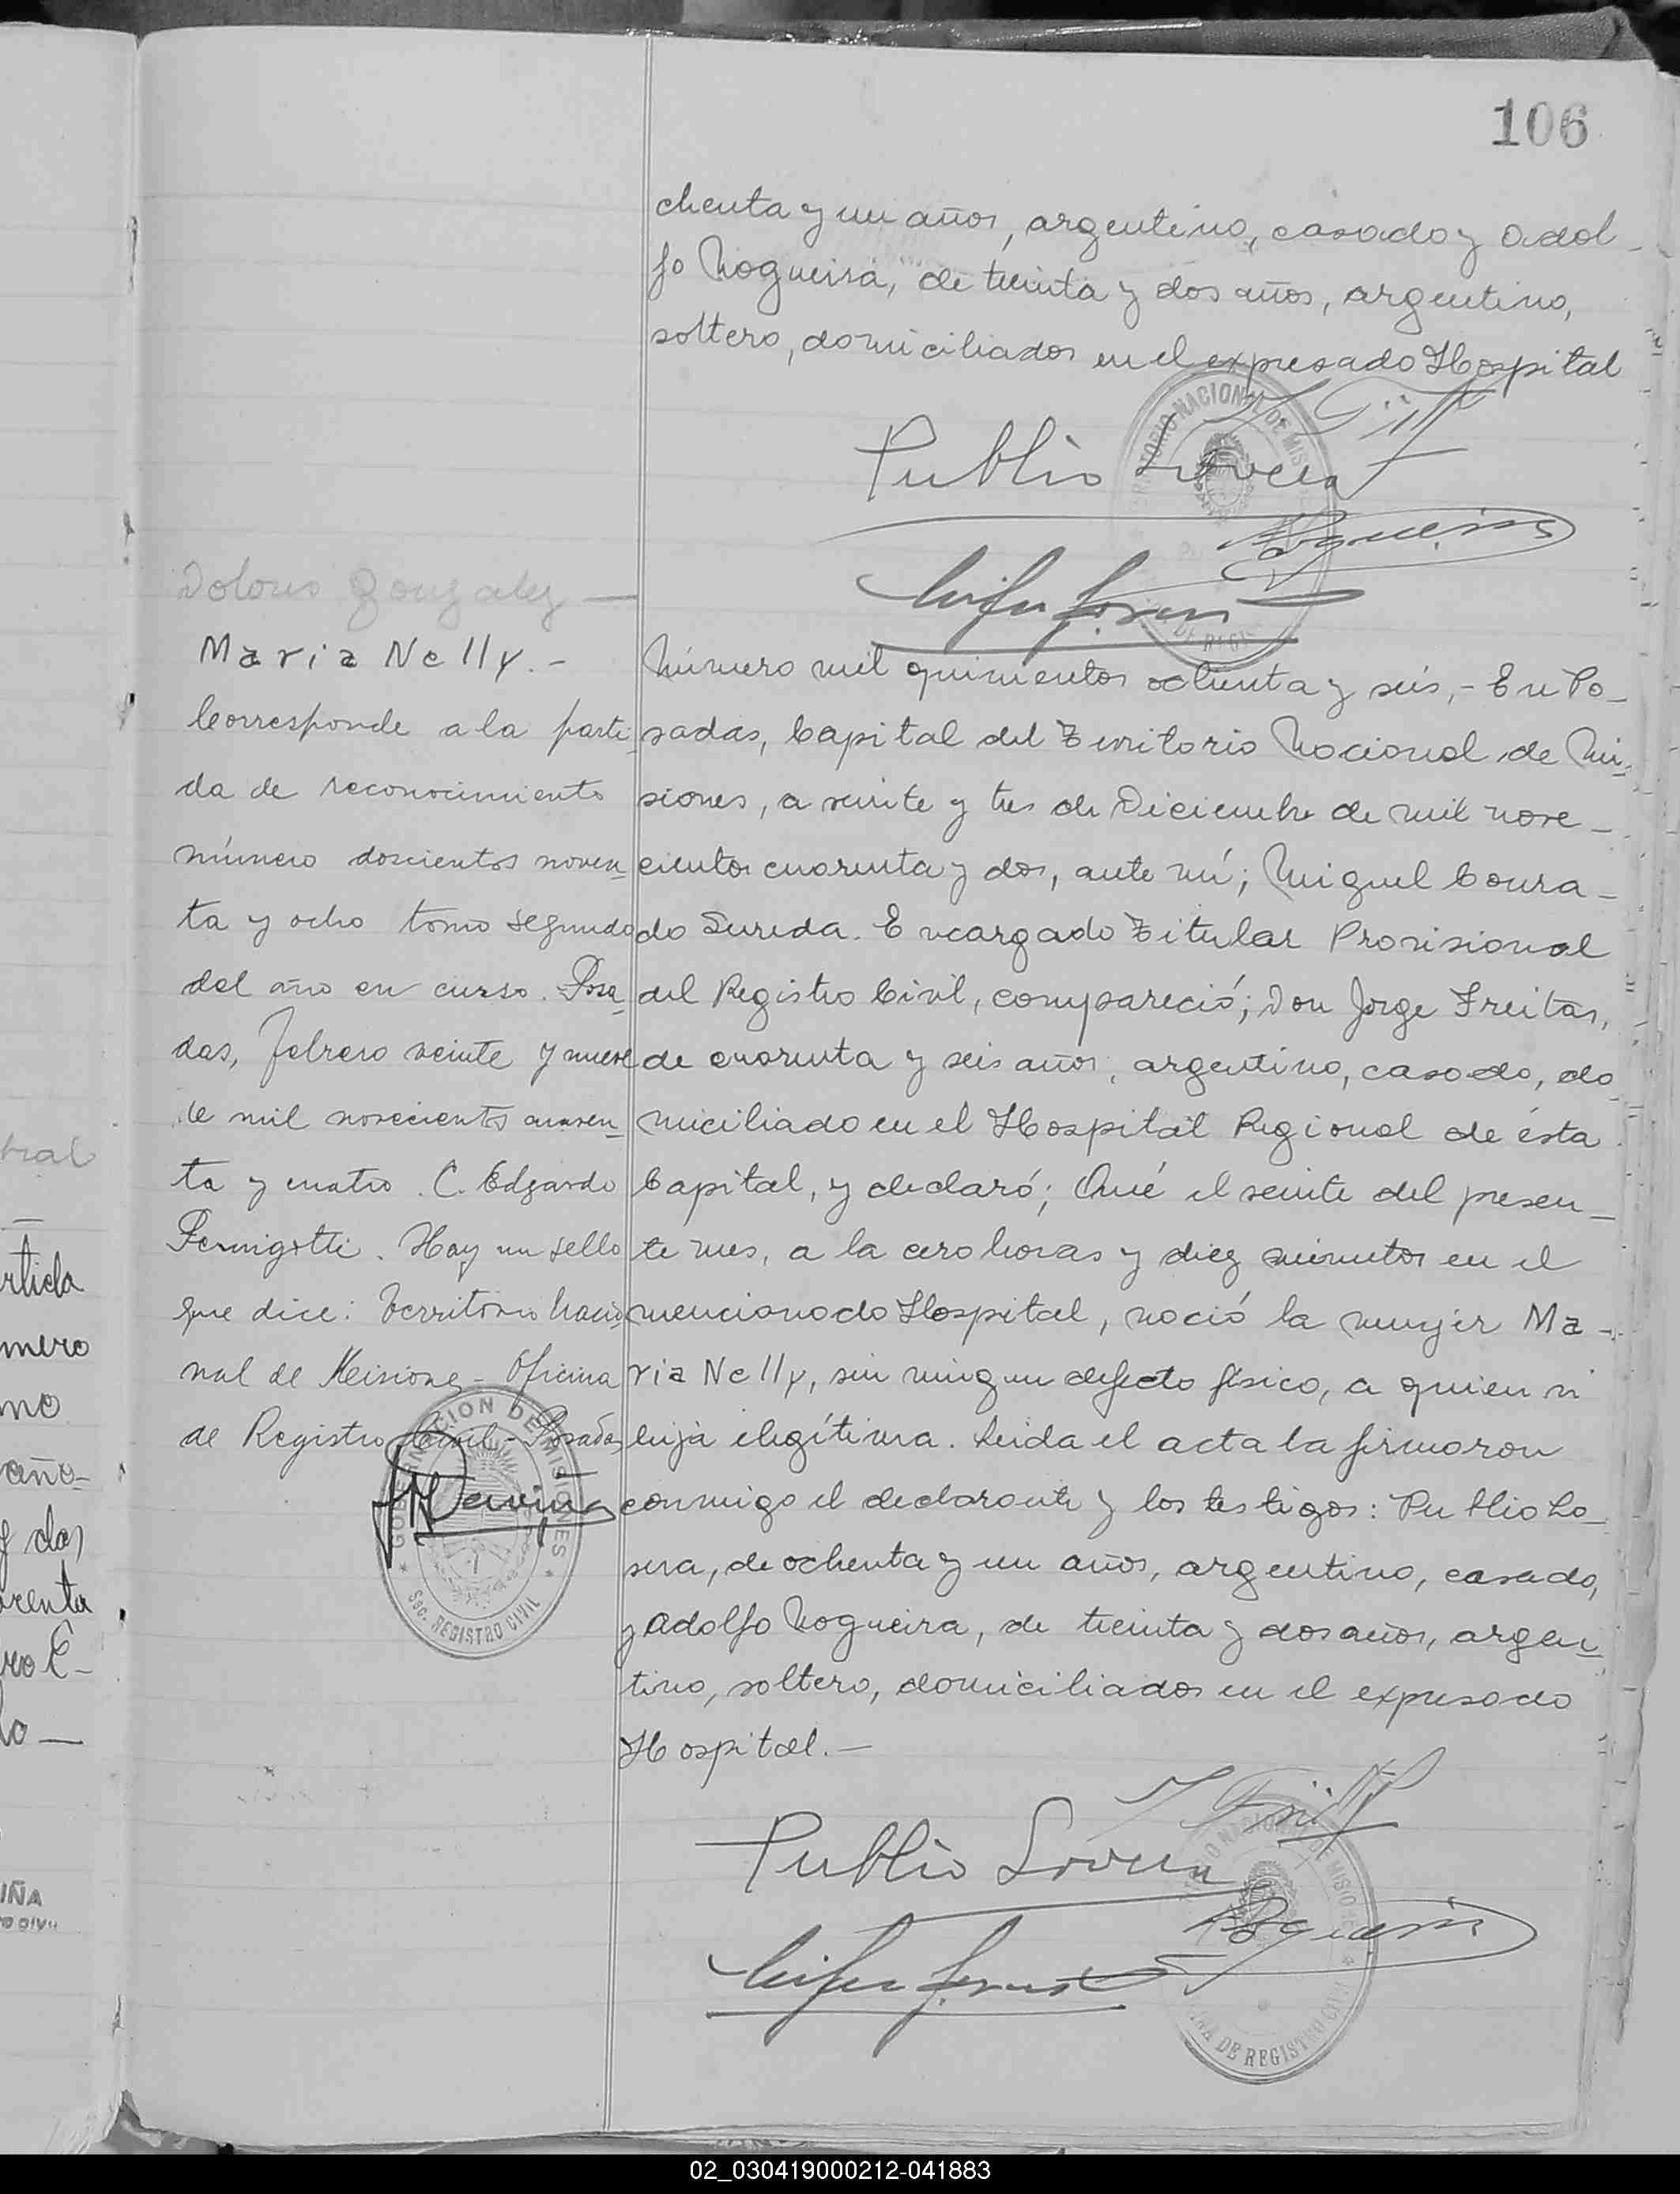 106
chenta y un años, argentino, casado y Adol-
fo Nogueira, de treinta y dos años, argentino,
soltero, domiciliados en el expresado Hospital
TERRITORIO NACIONAL DE MIS
Publio Lovera
Nogueira
DE REGIS
Dolores Gonzalez —
Maria Nelly.-
Corresponde a la parti-
da de reconocimiento
número doscientos noven-
ta y ocho tomo segundo
del año en curso. Posa-
das, febrero veinte y nueve
de mil novecientos cuaren-
ta y cuatro. C. Edgardo
Pernigotti. Hay un sello
que dice: Territorio Nacio-
nal de Misiones - Oficina
de Registro Civil - Posadas
GOBERNACION DE MISIONES
Sec. REGISTRO CIVIL
Número mil quinientos ochenta y seis,- En Po-
sadas, Capital del Territorio Nacional de Mi-
siones, a veinte y tres de Diciembre de mil nove-
cientos cuarenta y dos, ante mí; Miguel Conra-
do Sureda. Encargado Titular Provisional
del Registro Civil, compareció; Don Jorge Freitas,
de cuarenta y seis años, argentino, casado, do-
miciliado en el Hospital Regional de ésta
Capital, y declaró; Qué el veinte del presen-
te mes, a la cero horas y diez minutos en el
mencionado Hospital, nació la mujer Ma-
ria Nelly, sin ningun defecto físico, a quien vi
hija ilegítima. Leida el acta la firmaron
conmigo el declarante y los testigos: Publio Lo-
vera, de ochenta y un años, argentino, casado,
y Adolfo Nogueira, de treinta y dos años, argen-
tino, soltero, domiciliados en el expresado
Hospital.—
Publio Lovera
Nogueira
DE REGISTRO CIVIL
tral
rtida
mero
mo
año-
y dos
renta
ro C-
lo —
IÑA
02_030419000212-041883